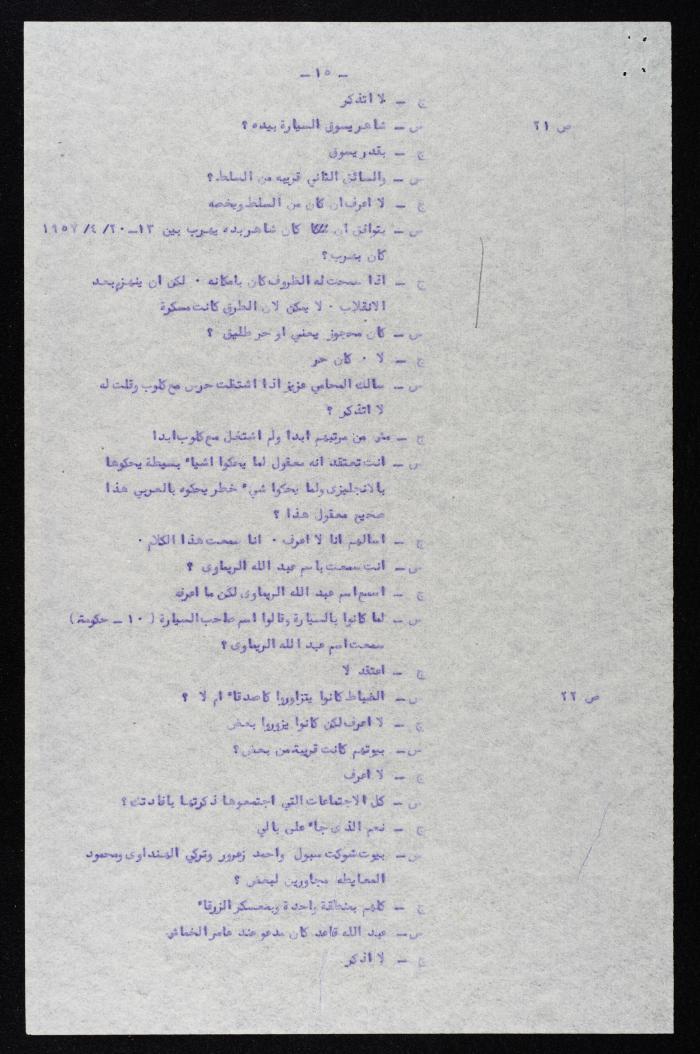 - ١٥ -
ج - لا اتذكر
ص ٢١ س - شاهر يسوق السيارة بيده ؟
ج - بقدر يسوق
س - والسائق الثاني قريبه من السلط ؟
ج - لا اعرف ان كان من السلط ويخصه
س - بتوافق ان كان شاهر بده يهرب بين ١٣-٢٠/ ٤/ ١٩٥٧
كان بهرب ؟
ج - اذا سمحت له الظروف كان بامكانه ٠ لكن ان ينهزم بعد
الانقلاب ٠ لا يمكن لان الطرق كانت مسكرة
س - كان محجوز يعني او حر طليق ؟
ج - لا ٠ كان حر
س - سالك المحامي عزيز اذا اشتغلت حرس مع كلوب وقلت له
لا اتذكر ؟
ج - من مرتبهم ابدا ولم اشتغل مع كلوب ابدا
س - انت تعتقد انه معقول لما يحكوا اشياء بسيطة يحكوها
بالانجليزى ولما يحكوا شيء خطر يحكوه بالعربي هذا
صحيح معقول هذا ؟
ج - اسالهم انا لا اعرف ٠ انا سمعت هذا الكلام ٠
س - انت سمعت باسم عبد الله الريماوى ؟
ج - اسمع اسم عبد الله الريماوى لكن ما اعرفه
س - لما كانوا بالسيارة وقالوا اسم صاحب السيارة ( ١٠ - حكومة )
سمعت اسم عبد الله الريماوى ؟
ج - اعتقد لا
ص ٢٢ س - الضباط كانوا يتزاوروا كاصدقاء ام لا ؟
ج - لا اعرف لكن كانوا يزوروا بعض
س - بيوتهم كانت قريبة من بعض ؟
ج - لا اعرف
س - كل الاجتماعات التي اجتمعوها ذكرتها بافادتك ؟
ج - نعم الذى جاء على بالي
س - بيوت شوكت سبول واحمد زعرور وتركي الهنداوى ومحمود
المعايطه مجاورين لبعض ؟
ج - كلهم بمنطقة واحدة وبمعسكر الزرقاء
س - عبد الله قاعد كان مدعو عند عامر الخماش
ج - لا اذكر